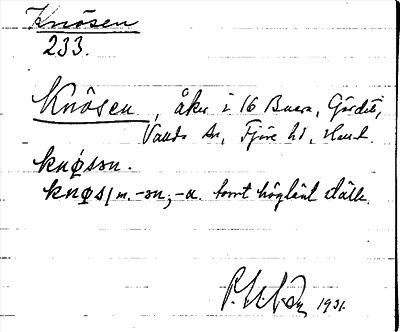 Knösen
233.
Knösen, åker i 16 Buera, Gärdet,
Fjäre hd, Hall.
knøsən.
knøs/ m. -ən, -a. tomt högländ ställe.
1931.